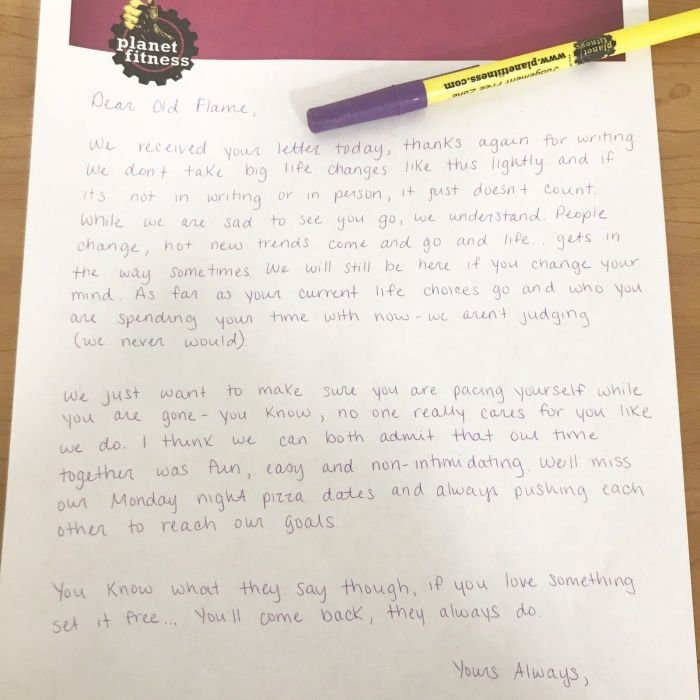 planet
fitness
www.planetfitness.com
Judgement Free Zone
planet
fitness
Dear Old Flame,
We received your letter today, thanks again for writing
We don't take big life changes like this lightly and if
its not in writing or in person, it just doesn't count.
While we are sad to see you go, we understand. People
change, hot new trends come and go and life... gets in
the way sometimes. We will still be here if you change your
mind. As far as your current life choices go and who you
are spending your time with now - we aren't judging
(we never would)
We just want to make sure you are pacing yourself while
you are gone - you know, no one really cares for you like
we do. I think we can both admit that our time
together was fun, easy and non-intimidating. We'll miss
our Monday night pizza dates and always pushing each
other to reach our goals.
You know what they say though, if you love something
set it free... You'll come back, they always do.
Yours Always,